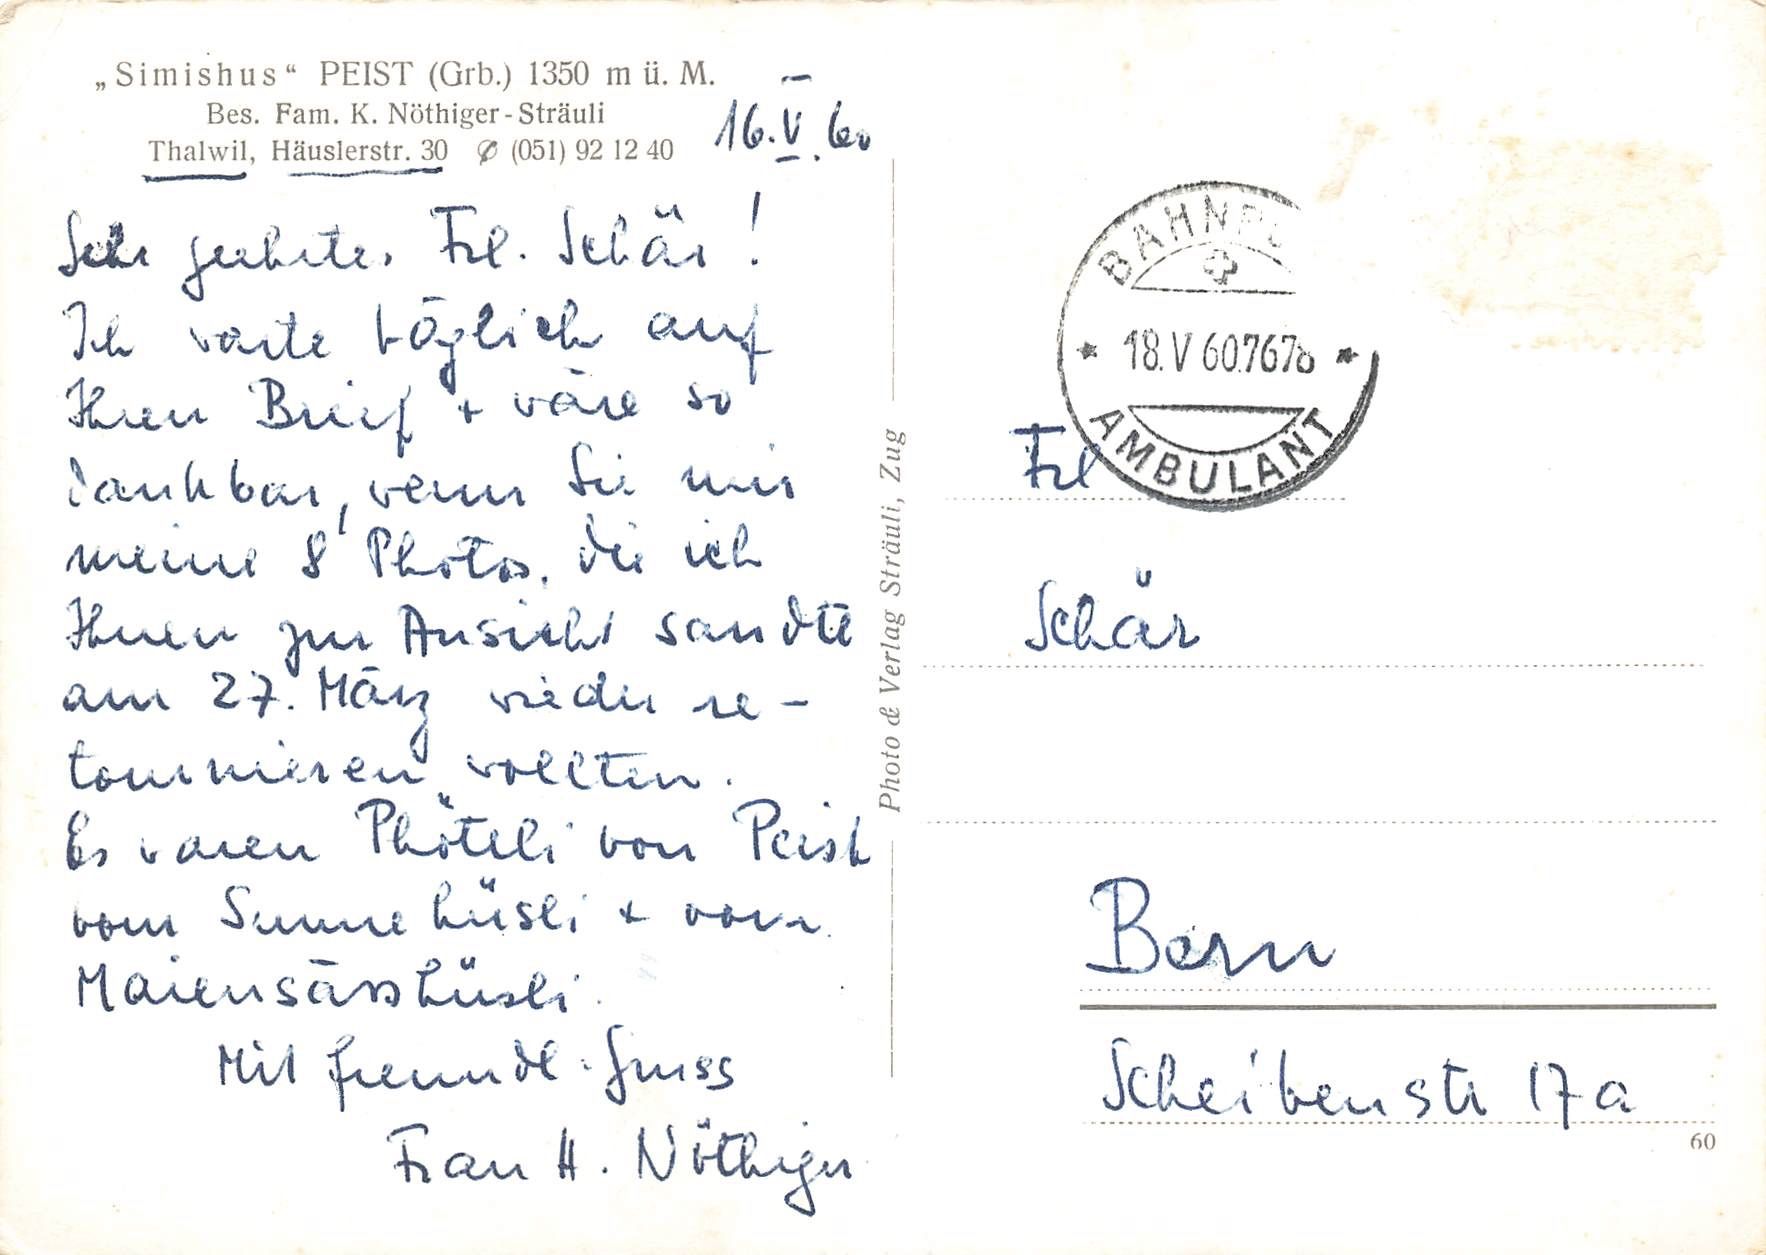 „Simishus“ PEIST (Grb.) 1350 m ü. M.
Bes. Fam. K. Nöthiger-Sträuli
Thalwil, Häuslerstr. 30 (051) 92 12 40
16. V. 60
Sehr geehrtes Frl. Schär!
Ich warte täglich auf
Ihren Brief + wäre so
dankbar, wenn Sie mir
meine 8 Photos, die ich
Ihnen zur Ansicht sandte
am 27. März wieder re-
tournieren wollten.
Es waren Phöteli von Peist
vom Sunnehüsli + vom
Maiensässhüsli.
Mit freundl. Gruss
Frau H. Nöthiger
Photo & Verlag Sträuli, Zug
BAHNPO
18. V 60.7678
AMBULANT
Frl
Schär
Bern
Scheibenstr 17a
60